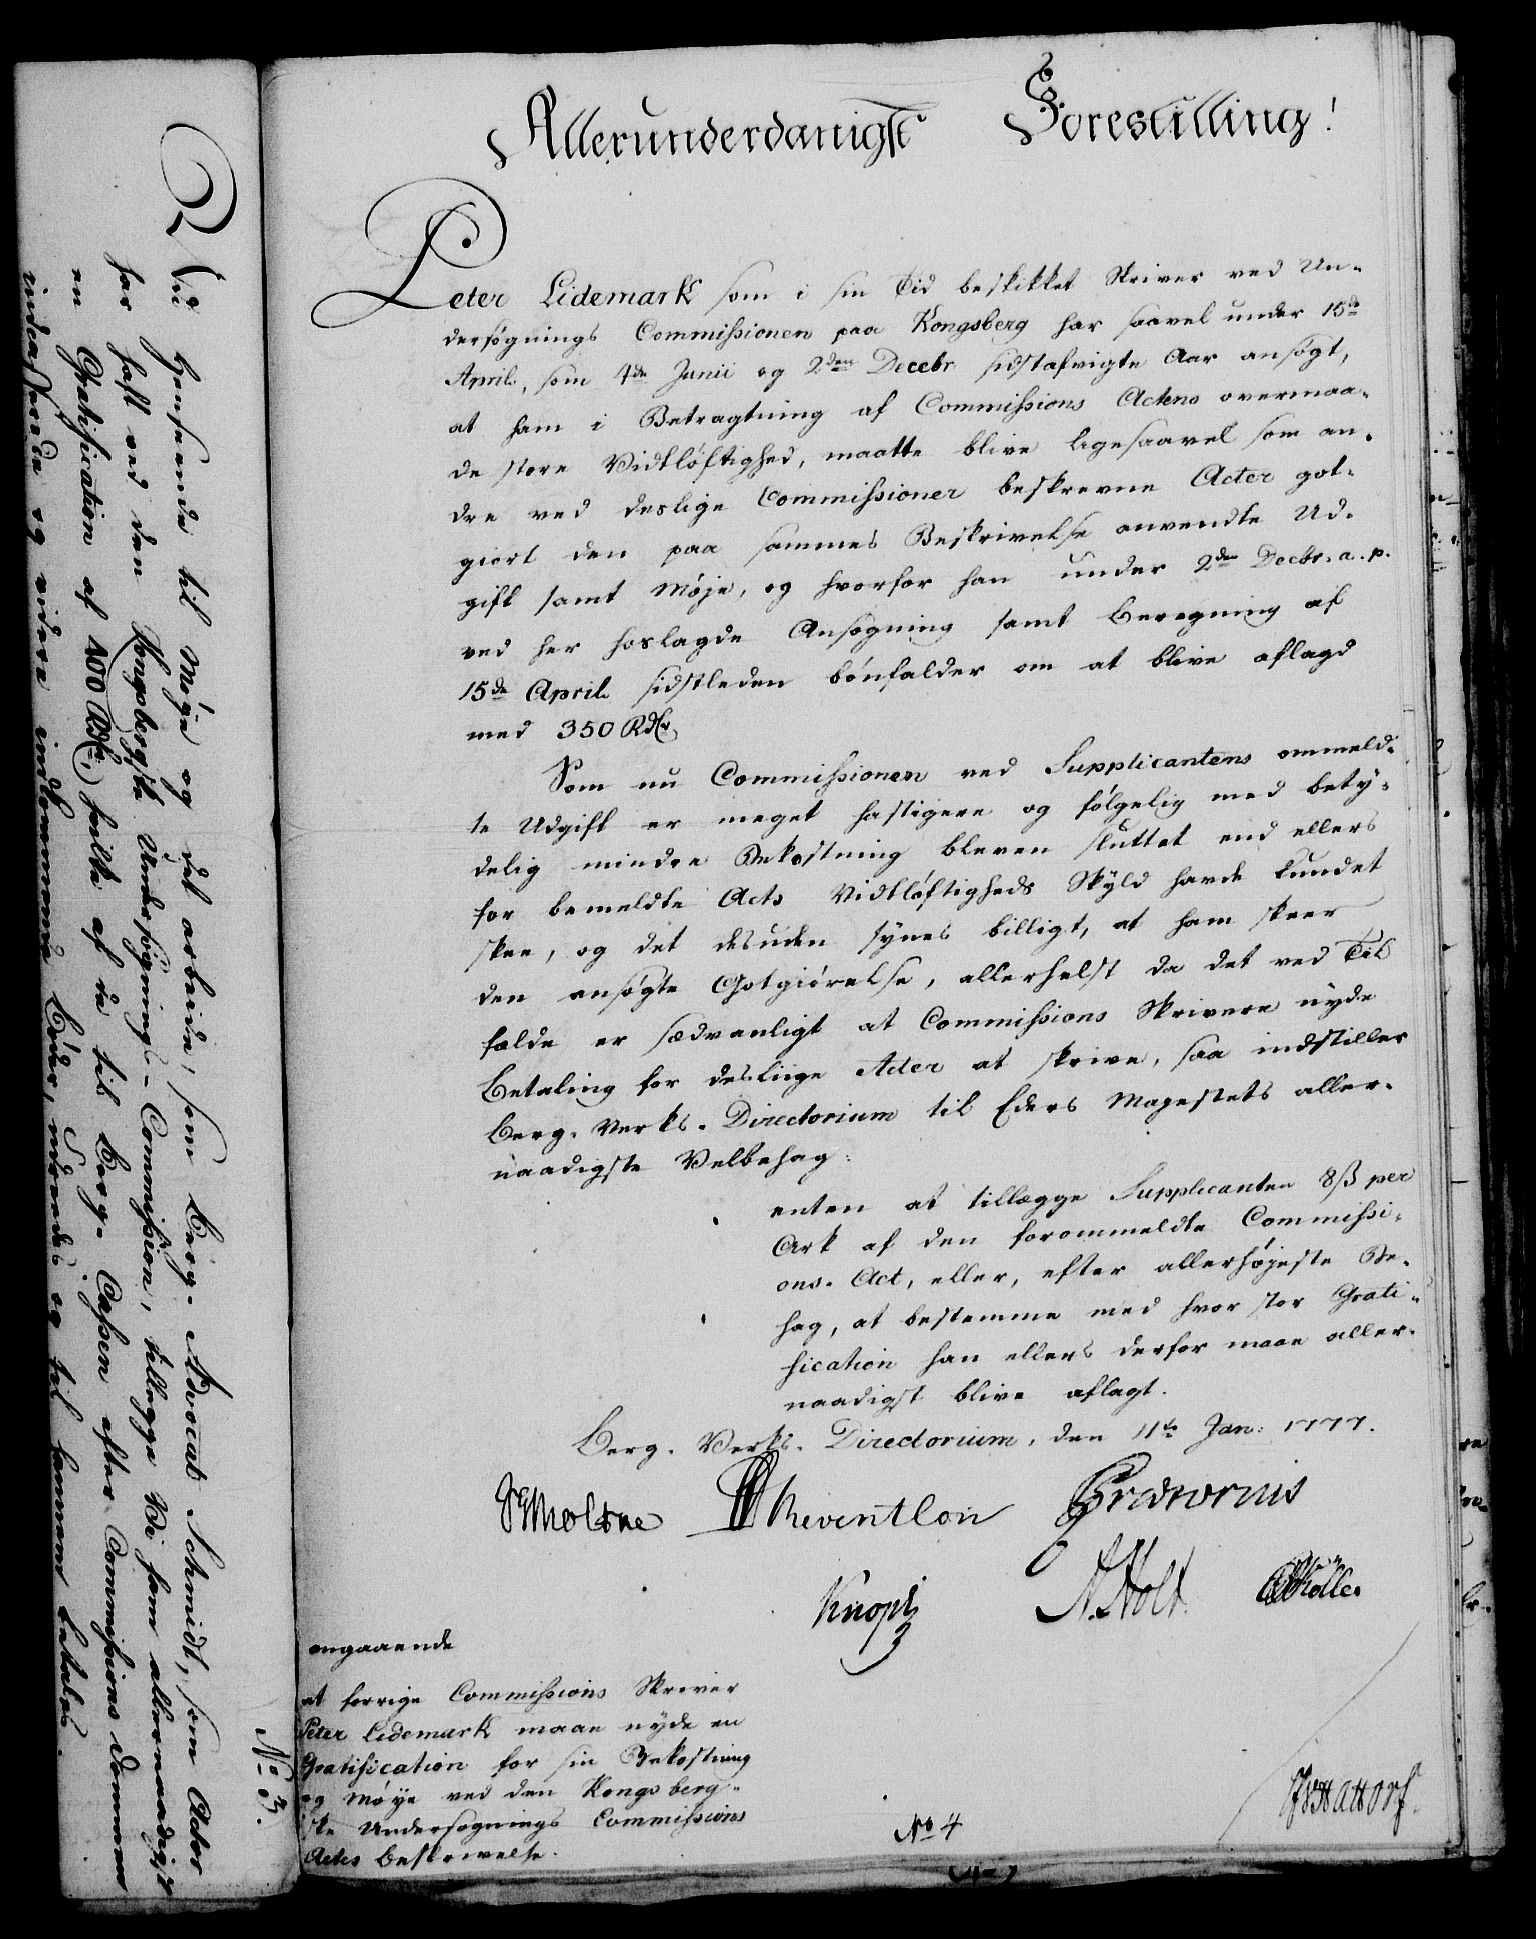 Allerunderdanigst Forestilling!
Peter Lidemark som i sin Tid beskikket Skriver ved Un-
dersøgnings Commissionen paa Kongsberg har saavel under 15de
April, som 4de Junii og 2den Decebr sidstafvigte Aar ansøgt,
at ham i Betragtning af Commissions Actens overmaa-
de store Vidtløftighed, maatte blive ligesaavel som an-
dre ved deslige Commissioner beskrevne Acter got-
giort den paa sammes Beskrivelse anvendte Ud-
gift samt Møje, og hvorfor han under 2den Decbr. a. p.
ved her hoslagde Ansøgning samt Beregning af
15de April sidstleden bønfalder om at blive aflagd
med 350 Rdlr.
Som nu Commissionen ved Supplicantens ommeld-
te Udgift er meget hastigere og følgelig med bety-
delig mindre Bekostning bleven sluttet end ellers
for bemeldte Acts Vidtløftigheds Skyld havde kundet
skee, og det desuden synes billigt, at ham skeer
den ansøgte Gotgiørelse, allerhelst da det ved Til
fælde er sædvanligt at Commissions Skrivere nyde
Betaling for desliige Acter at skrive, saa indstiller
Berg-Verks-Directorium til Eders Majestets aller-
naadigste Velbehag:
enten at tillægge Supplicanten 8 ß per
Ark af den forommeldte Commissi-
ons-Act, eller, efter allerhøjeste Be-
hag, at bestemme med hvor stor Grati-
fication han ellers derfor maae aller-
naadigst blive aflagt.
Berg-Verks-Directorium, den 11te Jan: 1777.
Moltke Reventlou Prætorius
Knoph N. Holt Møller
angaaende
at forrige Commissions Skriver
Peter Lidemark maae nyde en
Gratification for sin Bekostning
og Møye ved den Kongsberg-
ske Undersøgnings Commissions
Actes Beskrivelse.
No 4
Wattorf.
Vid Henseende til Møje og det arbeide, som Berg-Advocat Schmidt, som Actor
har haft ved den Kongsbergske Undersøgnings-Commission, tillegge Vi ham allernaadigst
en Gratification af 400 Rdlr, hvilke af de til Berg-Cassen efter Commissions Dommene
indcasserede og videre indkommende Bøder, udreedes og til hannem betales.
No 3.